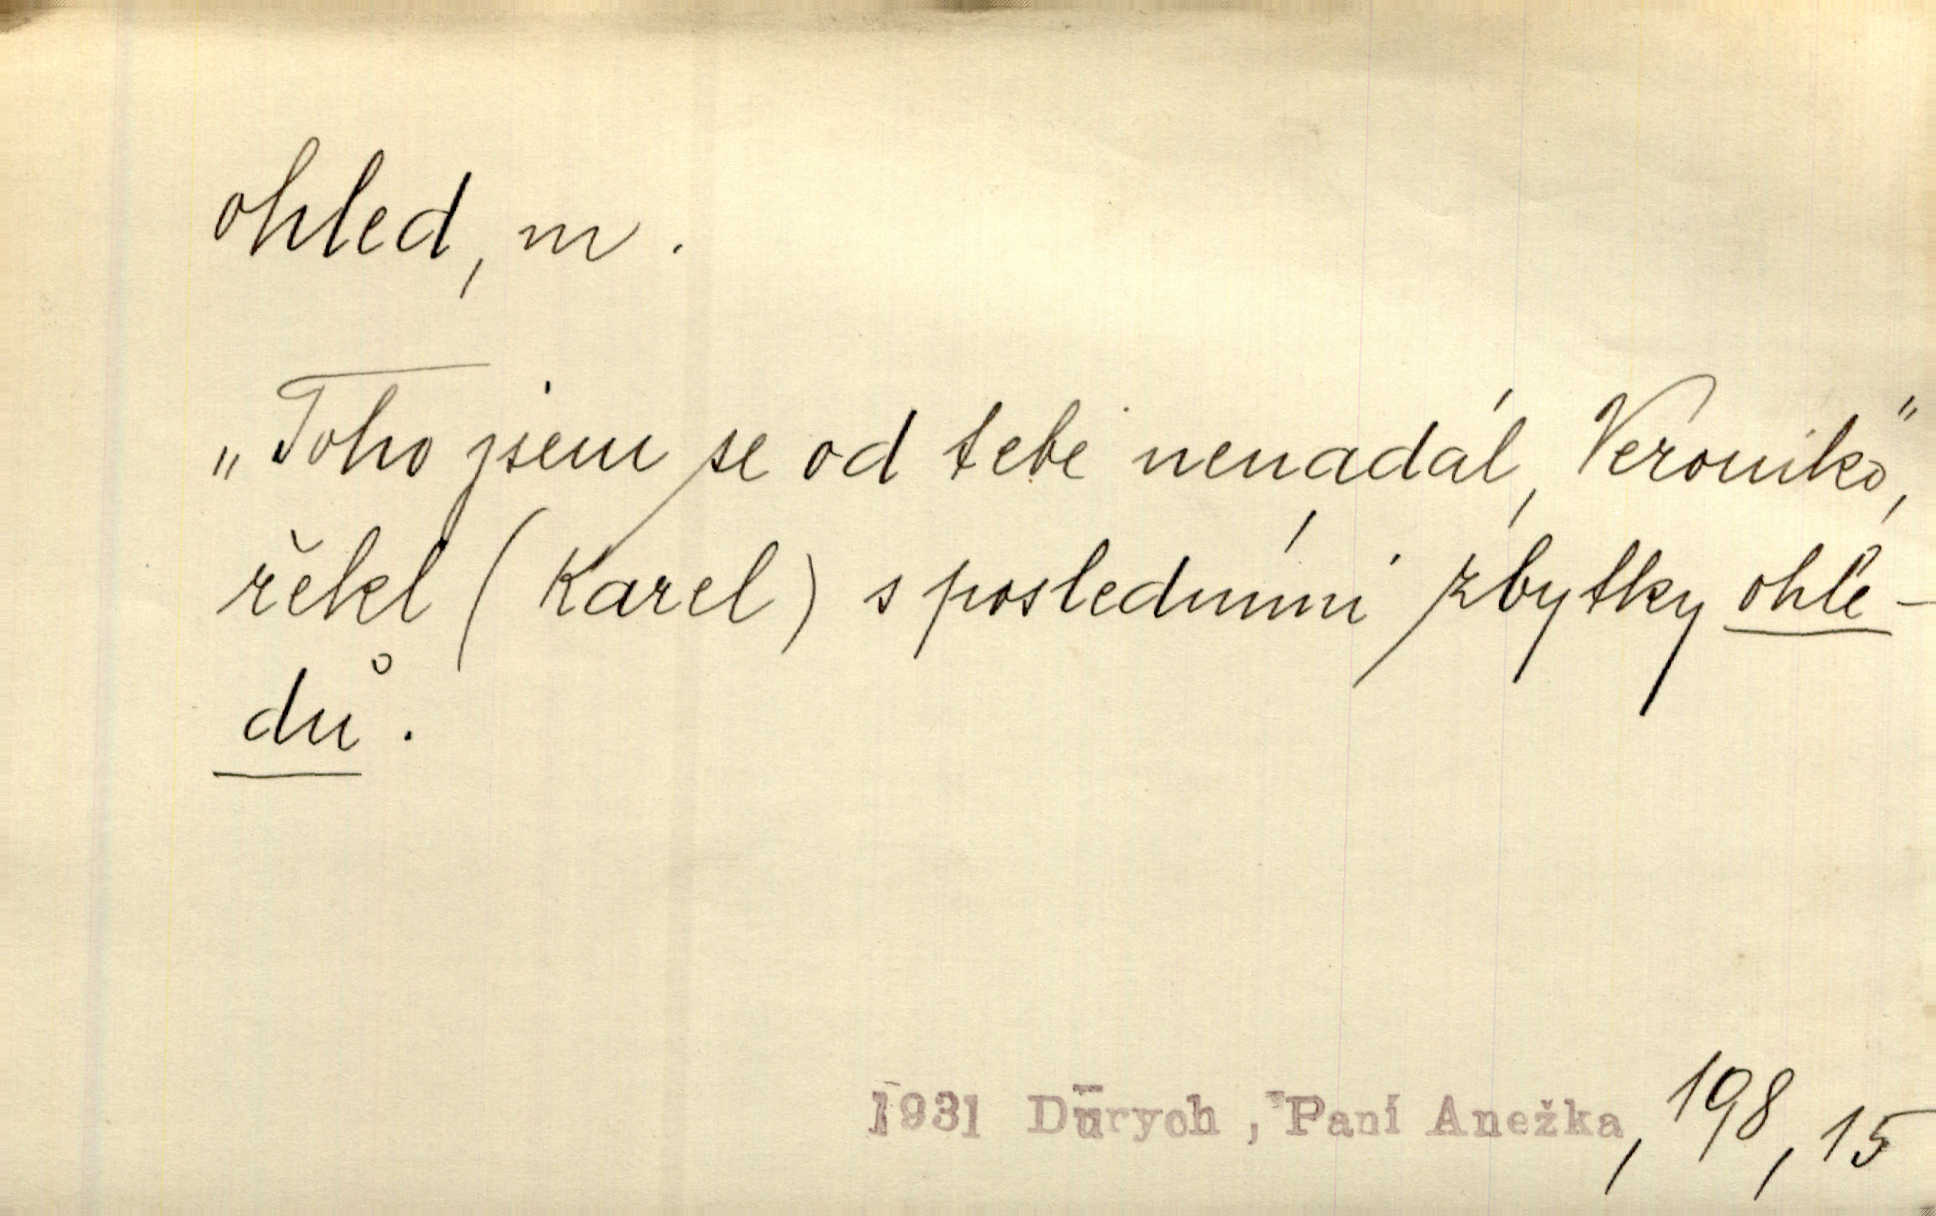 ohled, m.
„Toho jsem se od tebe nenadál, Veroniko",
řekl (Karel) s posledními zbytky ohle-
dů.
1931 Durych, Paní Anežka, 198, 15